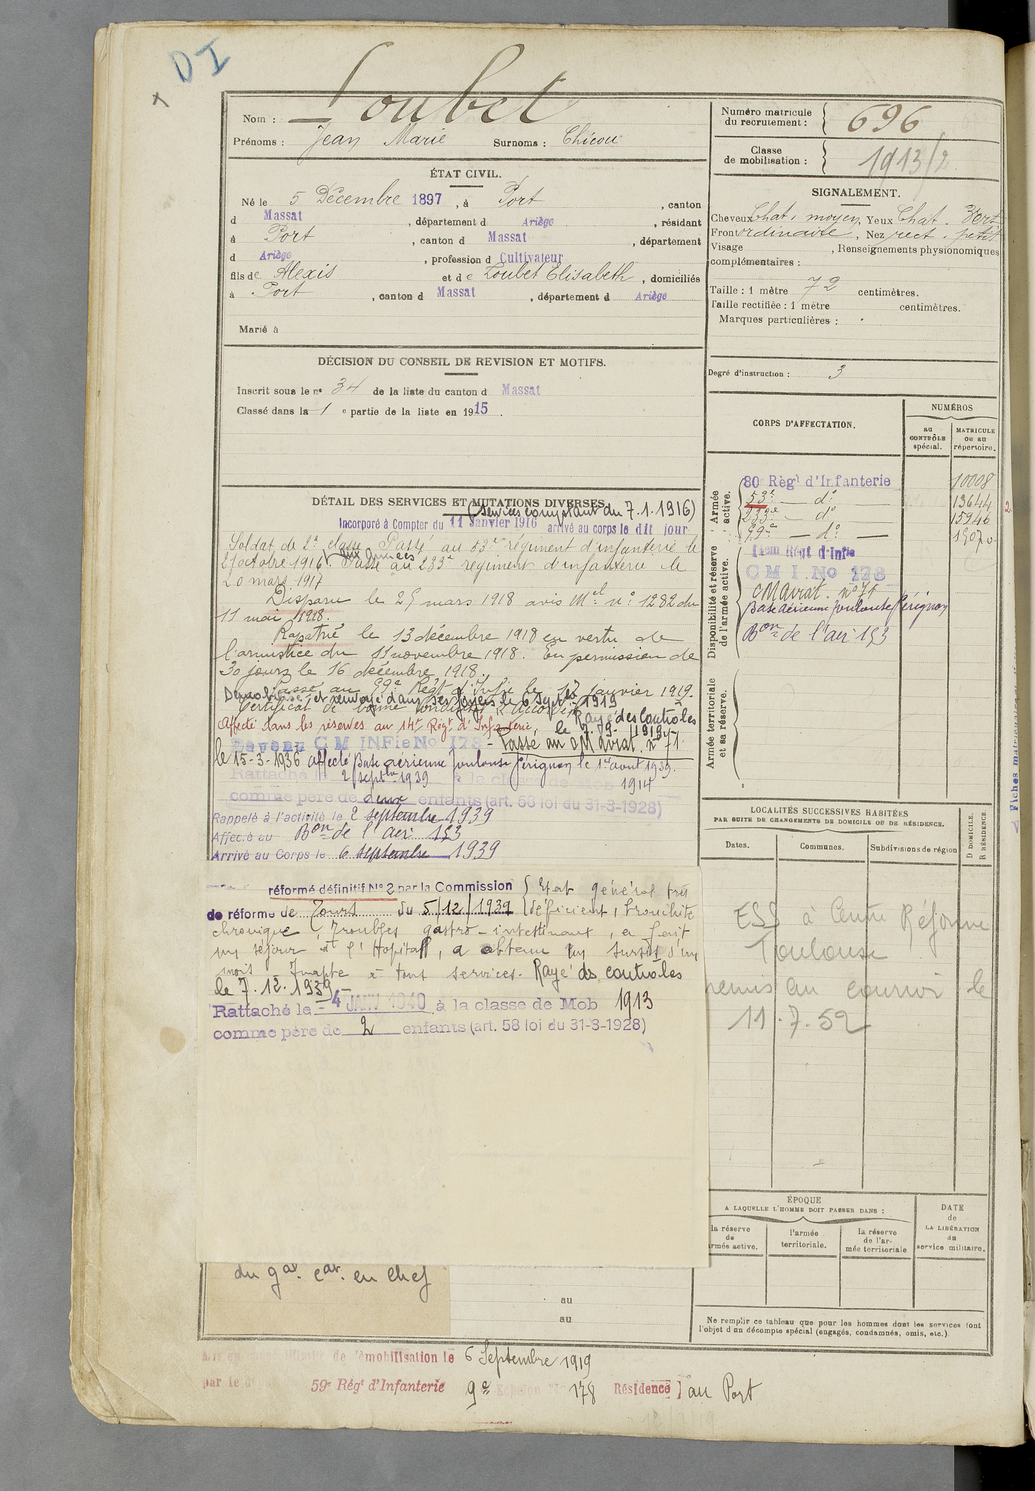 DI
Nom : Loubet
Prénoms : Jean Marie Surnoms : Chicou
Numéro matricule du recrutement : 696
Classe de mobilisation : 1913/2
ÉTAT CIVIL.
Né le 5 Décembre 1897, à Port, canton
d Massat, département d Ariège, résidant
à Port, canton d Massat, département
d Ariège, profession d Cultivateur
fils de Alexis et de Loubet Elisabeth, domiciliés
à Port, canton d Massat, département d Ariège
Marié à
SIGNALEMENT.
Cheveux Chat. moyen, Yeux Chat. Vert
Front ordinaire, Nez rect. petit
Visage , Renseignements physionomiques
complémentaires :
Taille : 1 mètre 72 centimètres.
Taille rectifiée : 1 mètre centimètres.
Marques particulières :
Degré d'instruction : 3
DÉCISION DU CONSEIL DE REVISION ET MOTIFS.
Inscrit sous le n° 34 de la liste du canton d Massat
Classé dans la 1 e partie de la liste en 1915.
DÉTAIL DES SERVICES ET MUTATIONS DIVERSES.
(Services comptant du 7.1.1916)
Incorporé à Compter du 11 Janvier 1916 arrivé au corps le dit jour
Soldat de 2e classe Passé au 53e régiment d'infanterie le
2 octobre 1916. Passé au 233e régiment d'infanterie le
aux armées
20 mars 1917
Disparu le 29 mars 1918 avis Mel n° 1282 du
11 mai 1918.
Rapatrié le 13 décembre 1918 en vertu de
l'armistice du 11 novembre 1918. En permission de
30 jours le 16 décembre 1918.
Passé au 99e Régt d'Infie le 17 janvier 1919.
et renvoyé dans ses foyers le 6 Sept 1919
Certificat de bonne conduite accordé
Affecté dans les réserves au 14e Régt d'Infanterie.
Rayé des Controles
le 9. 1919
Devenu C M INFie No 178 - Passé au O M aviat. n° 71
le 15-3-1936 affecté Base aérienne Toulouse Pérignon le 1er aout 1939.
Rattaché le 2 septbre 1939 à la classe de 1914
comme père de deux enfants (art. 58 loi du 31-3-1928)
Rappelé à l'activité le 2 septembre 1939
Affecté au Bon de l'air 153
Arrivé au Corps le 6 septembre 1939
réformé définitif N° 2 par la Commission
de réforme de Tours du 5/12/1939
Etat général très
déficient, Bronchite
chronique, Troubles gastro-intestinaux, a fait
un séjour à l'Hopital, a obtenu un sursis d'un
mois Inapte à tous services. Rayé des controles
le 7.12.1939
Rattaché le 4 JANV 1940 à la classe de Mob 1913
comme père de 2 enfants (art. 58 loi du 31-3-1928)
CORPS D'AFFECTATION.
NUMÉROS
AU CONTRÔLE spécial.
MATRICULE OU AU répertoire.
Armée active.
80 Régt d'Infanterie 10008
53e — do 13644
233e — do 15946
99e — do — 19070
Disponibilité et réserve de l'armée active.
14em Régt d'Infie
C M I No 178
O M aviat. n° 71
Base aérienne Toulouse Pérignon
Bon de l'air 153
Armée territoriale et sa réserve.
LOCALITÉS SUCCESSIVES HABITÉES
PAR SUITE DE CHANGEMENTS DE DOMICILE OU DE RÉSIDENCE.
Dates.
Communes.
Subdivisions de région
D DOMICILE.
R RÉSIDENCE
ESS à Centre Réforme
Toulouse
remis au courrier le
11.7.52
ÉPOQUE
A LAQUELLE L'HOMME DOIT PASSER DANS :
la réserve de armée active.
l'armée territoriale.
la réserve de l'armée territoriale
DATE de LA LIBÉRATION du service militaire.
du gal. cat. en chef
au
au
Ne remplir ce tableau que pour les hommes dont les services font
l'objet d'un décompte spécial (engagés, condamnés, omis, etc.).
de démobilisation le 6 Septembre 1919
par le 59e Régt d'Infanterie 9e Echelon 178 Résidence au Port